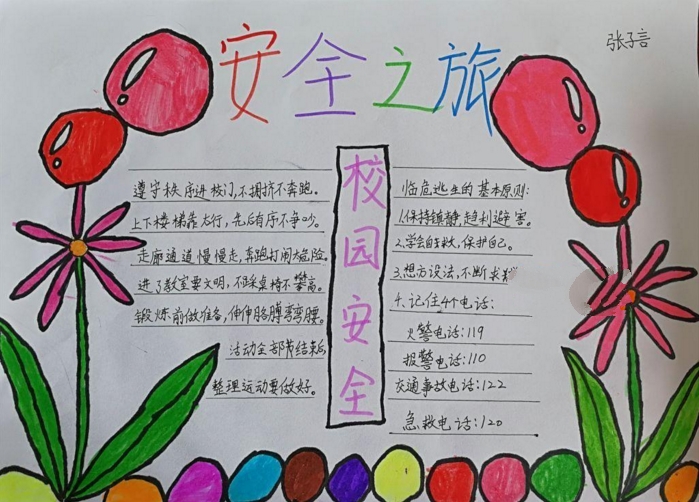 安全之旅
张子言
遵守秩序进校门,不拥挤不奔跑。
上下楼梯靠右行,先后有序不争吵。
走廊通道慢慢走,奔跑打闹太危险。
进了教室要文明,不踩桌椅不攀高。
锻炼前做准备,伸伸胳膊弯弯腰。
活动全部结束后,
整理运动要做好。
校园安全
临危逃生的基本原则:
1.保持镇静,趋利避害。
2.学会自救,保护自己。
3.想方设法,不断求救
4.记住4个电话:
火警电话:119
报警电话:110
交通事故电话:122
急救电话:120